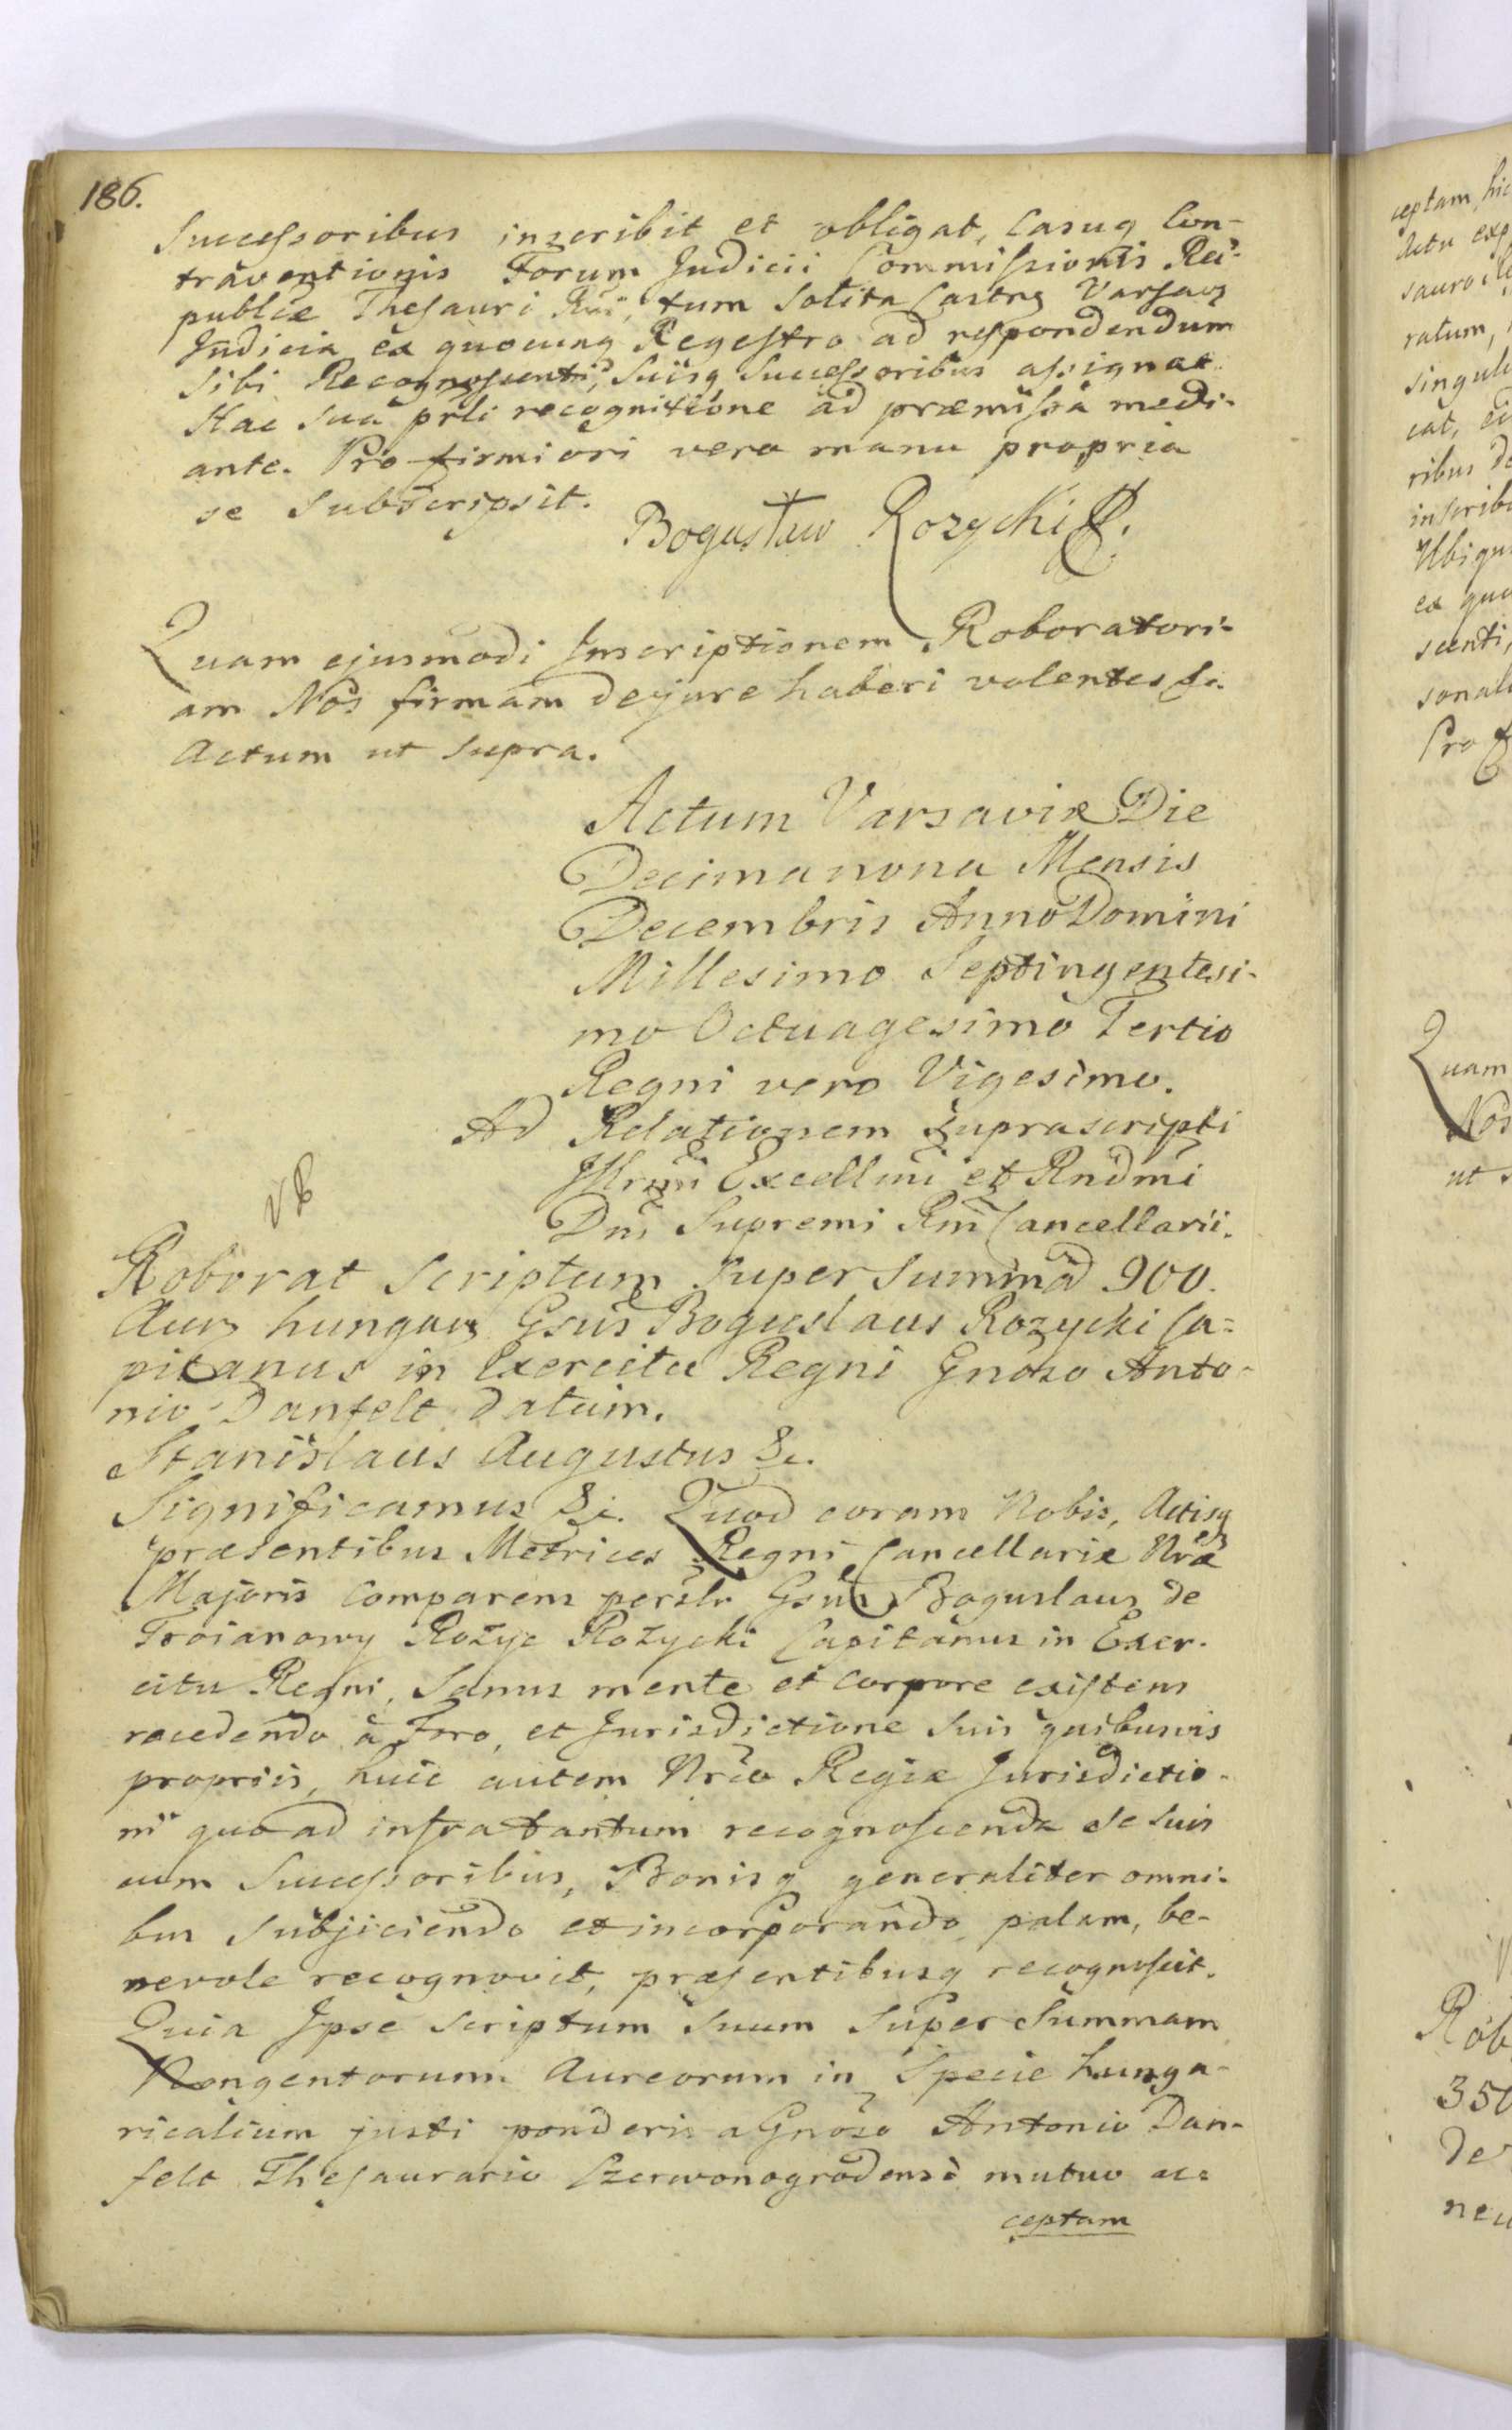 186.
Successoribus inscribit et obligat, Casuq Con-
traventionis Forum Judicii Commissionis Rei-
publicæ Thesauri Rni, tum Solita Castra Varsav
Judicia ex quocunq Regestro ad respondendum
sibi Recognoscenti, Suisq Successoribus assignat
Hac Sua prli recognitione ad præmissa medi-
ante. Pro firmiori vero manu propria
se Subscripsit.
Bogusław Rozycki
Quam ejusmodi Inscriptionem Roboratori-
am Nos firmam dejure haberi volentes &c.
Actum ut Supra.
Actum Varsaviæ Die
Decima nona Mensis
Decembris Anno Domini
Millesimo Septingentesi-
mo Octuagesimo Tertio
Regni vero Vigesimo.
Ad Relationem Suprascripti
Illrmi Excellmi et Rndmi
Dni Supremi Rni Cancellarii.
Roborat Scriptum super Summa 900.
Aur hungar Gsus Boguslaus Rozycki Ca-
pitanus in Exercitu Regni Gnoso Anto-
nio Danfelt datum.
Stanislaus Augustus &c.
Significamus &c. Quod coram Nobis, Actisq
præsentibus Metrices Regni Cancellariæ Nræ
Majoris Comparens persłr Gsus Boguslaus de
Troianowy Rożyc Rożycki Capitanus in Exer-
citu Regni, Sanus mente et Corpore existens
recedendo à Foro, et Jurisdictione Suis quibusvis
propriis, huic autem Nræ Regiæ Jurisdictio-
ni quo ad infra tantum recognoscenda se Suis
cum Successoribus, Bonisq generaliter omni-
bus Subjiciendo et incorporando palam, be-
nevole recognovit, præsentibusq recognoscit.
Quia Ipse Scriptum Suum Super Summam
Nongentorum Aureorum in Specie hunga-
ricalium justi ponderis a Gnoso Antonio Dan-
felt Thesaurario Czerwonogrodensi mutuo ac-
ceptam
ceptam hic
Actu
sauro
ratum,
singul
cat,
ribus
inscrib
Ubiqu
ex quo
scenti,
sonal
Pro
Quam
Nos
ut s
Rob
350
de